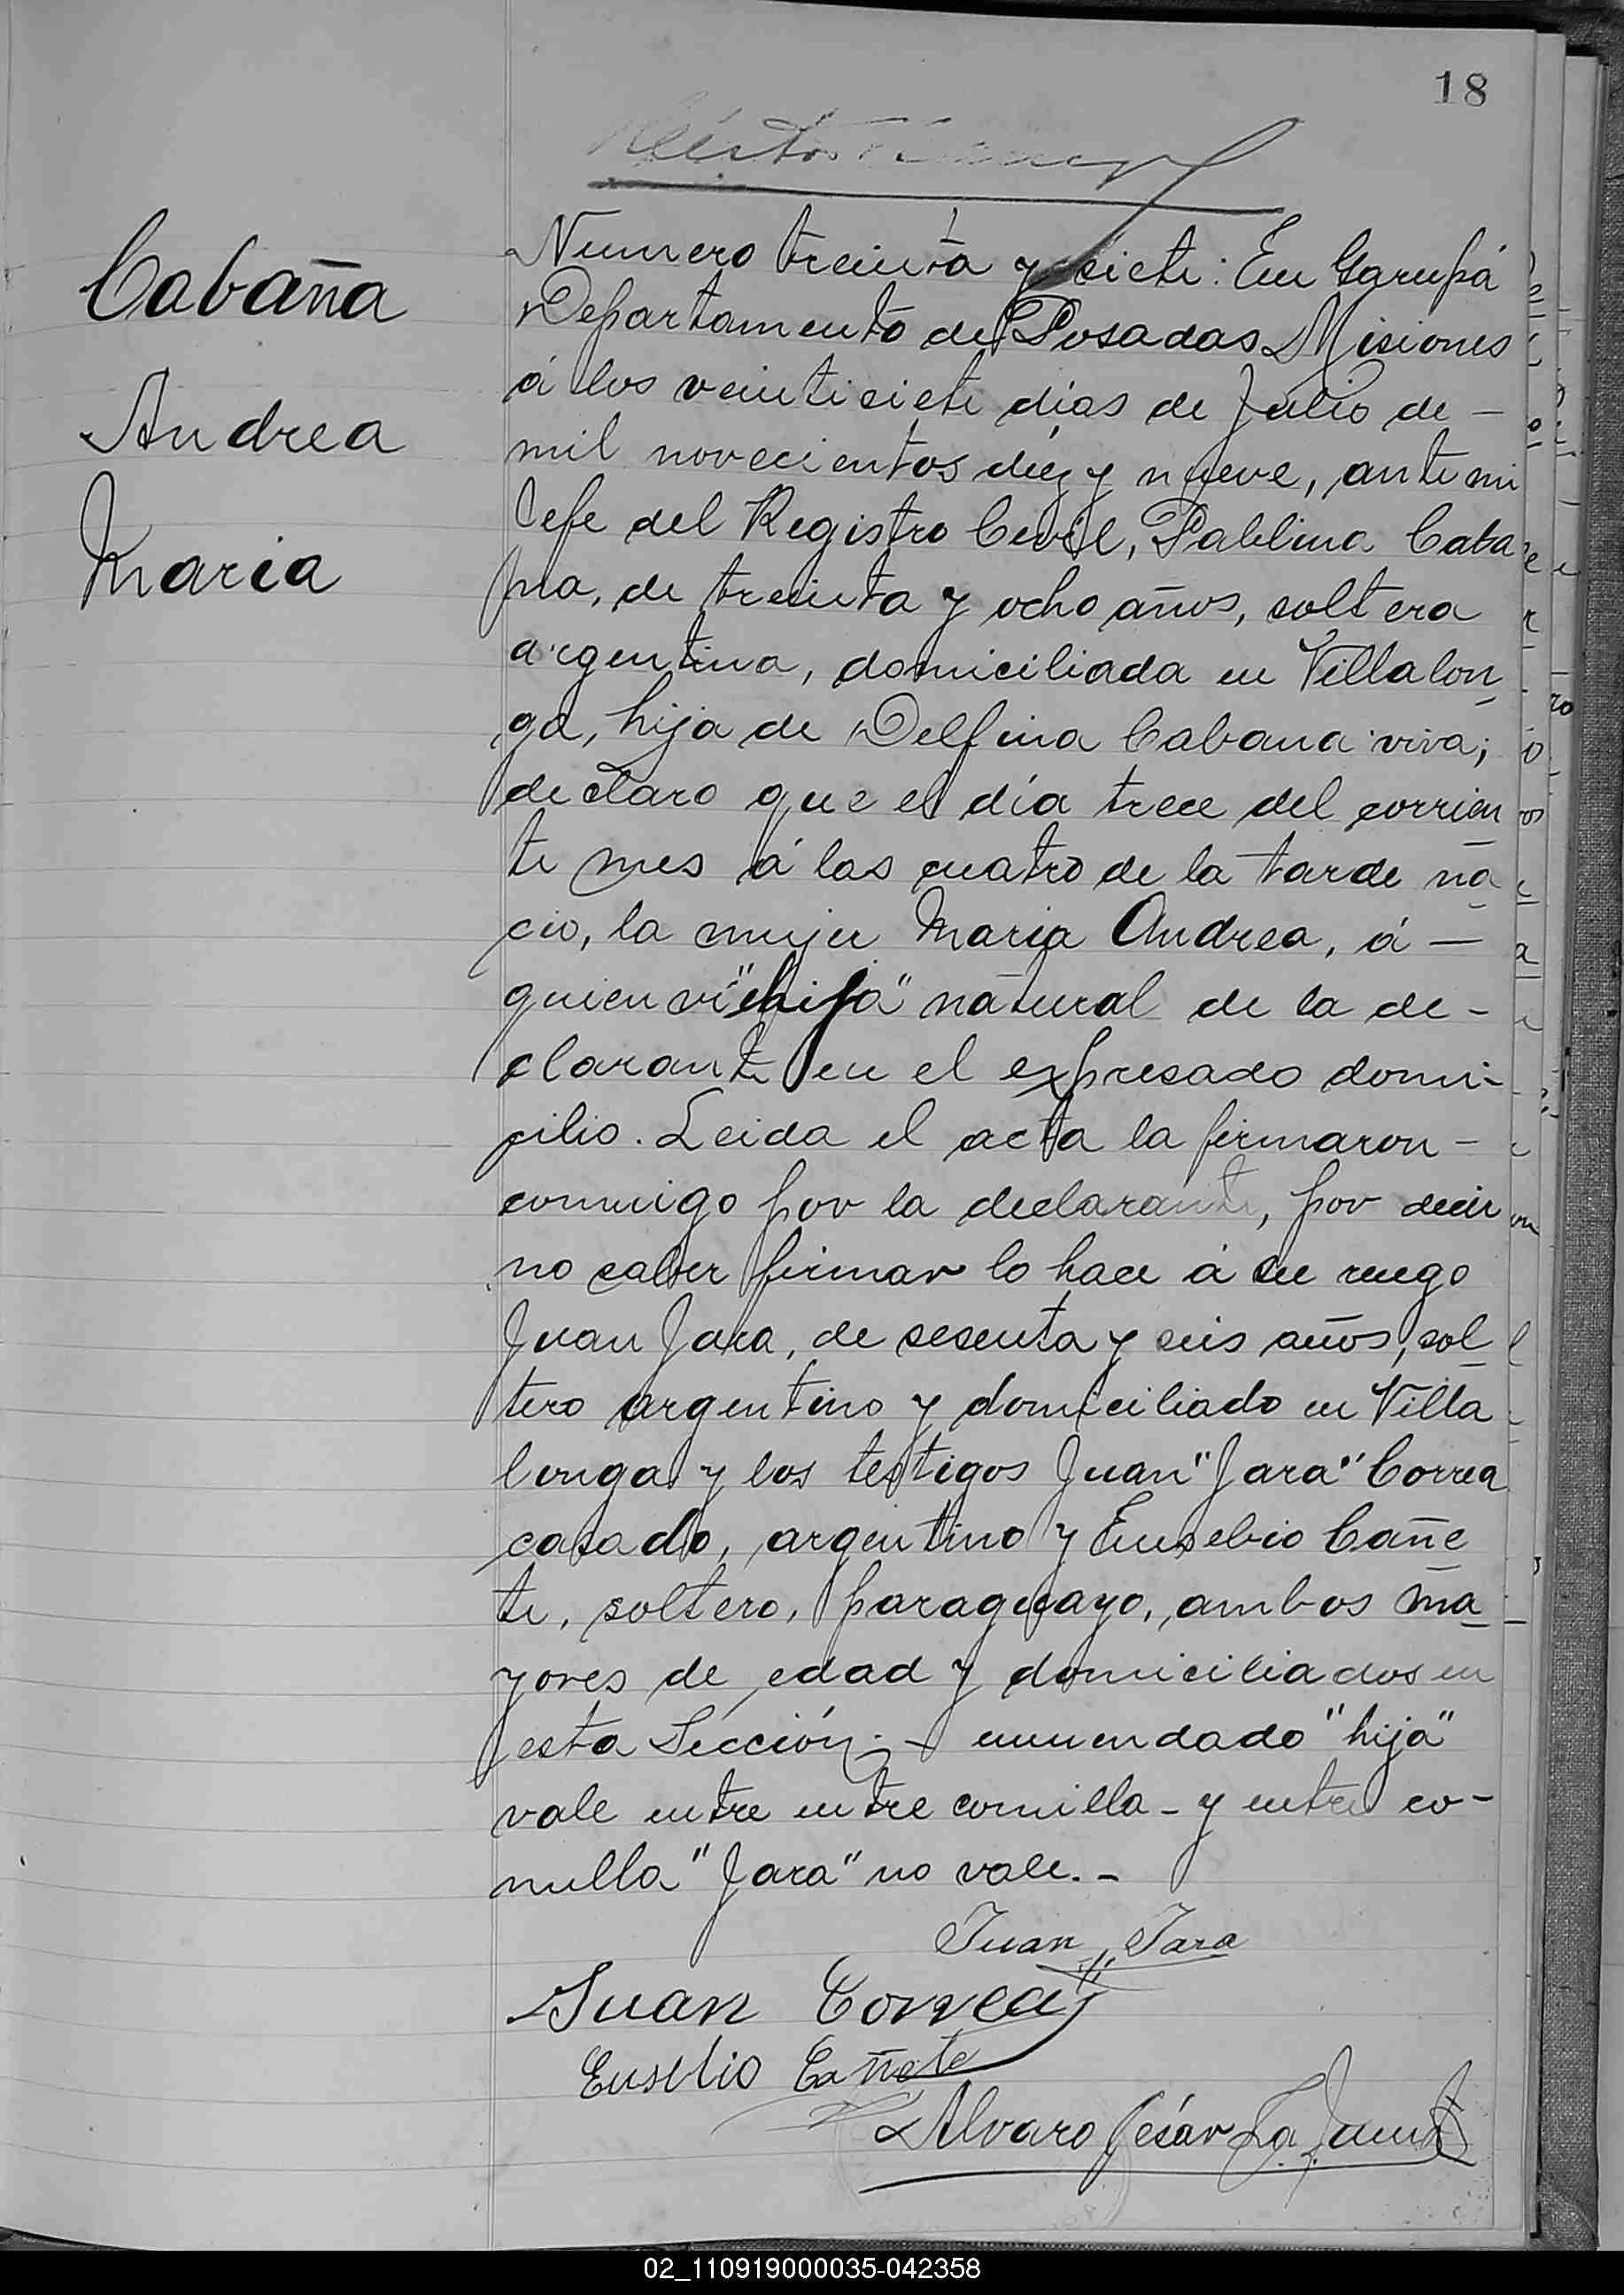 18
Cabaña
Andrea
Maria
Numero treinta y siete: En Garupá
Departamento de Posadas Misiones
á los veintisiete días de Julio de —
mil novecientos diéz y nueve, ante mi
Jefe del Registro Cevil, Pablina Caba
ña, de treinta y ocho años, soltera
argentina, domiciliada en Villalon
ga, hija de Delfina Cabana viva;
declaro que el día trece del corrien
te mes á las cuatro de la tarde na
cio, la mujer Maria Andrea, á —
quien vi "hija" natural de la de-
clarante en el expresado domi-
cilio. Leida el acta la firmaron -
conmigo por la declarante, por decir
no saber firmar lo hace á su ruego
Juan Jara, de sesenta y seis años, sol
tero argentino y domiciliado en Villa
longa y los testigos Juan "Jara" Correa
casado, argentino y Eusebio Cañe
te, soltero, paraguayo, ambos ma
yores de edad y domiciliados en
esta Sección.- enmendado "hija"
vale entre entre comilla - y entre co-
milla "Jara" no vale.-
Juan Jara
Juan Correa
Eusebio Cañete
Alvaro César La
02_110919000035-042358